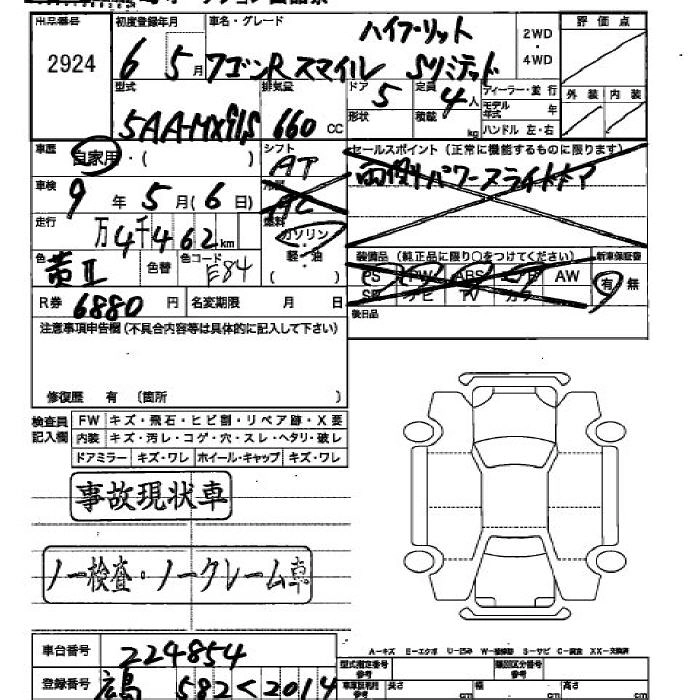 出品番号 初度登録年月 車名・グレード ハイブリット 2WD・4WD 評価点
2924 6 5月 ワゴンR スマイル Sリミテッド
型式 排気量 ドア 5 定員 4人 ディーラー・並行 外装 内装
形状 積載 kg モデル年式 年
5AA-MX91S 660 cc ハンドル 左・右
車歴 自家用・( ) シフト AT セールスポイント (正常に機能するものに限ります)
車検 9年 5月(6日) 冷房 AC 両側パワースライドドア
走行 万4千462km 燃料 ガソリン・軽・油 ( )
色 黄Ⅱ 色替 色コード E84 装備品 (純正品に限り○をつけてください) 新車保証書
PS PW ABS エアB AW 有 無
SR ナビ TV カワ
R券 6880円 名変期限 月 日 後日品
注意事項申告欄 (不具合内容等は具体的に記入して下さい)
修復歴 有 (箇所 )
検査員記入欄 FW キズ・飛石・ヒビ割・リペア跡・X要
内装 キズ・汚レ・コゲ・穴・スレ・ヘタリ・破レ
ドアミラー キズ・ワレ ホイール・キャップ キズ・ワレ
事故現状車
ノー検査・ノークレーム車
A-キズ E-エクボ U-凹み W-補修跡 S-サビ C-腐食 XX-交換済
車台番号 224854 型式指定番号 参考 類別区分番号 参考
登録番号 広島 582 く 2014 長さ cm 幅 cm 高さ cm